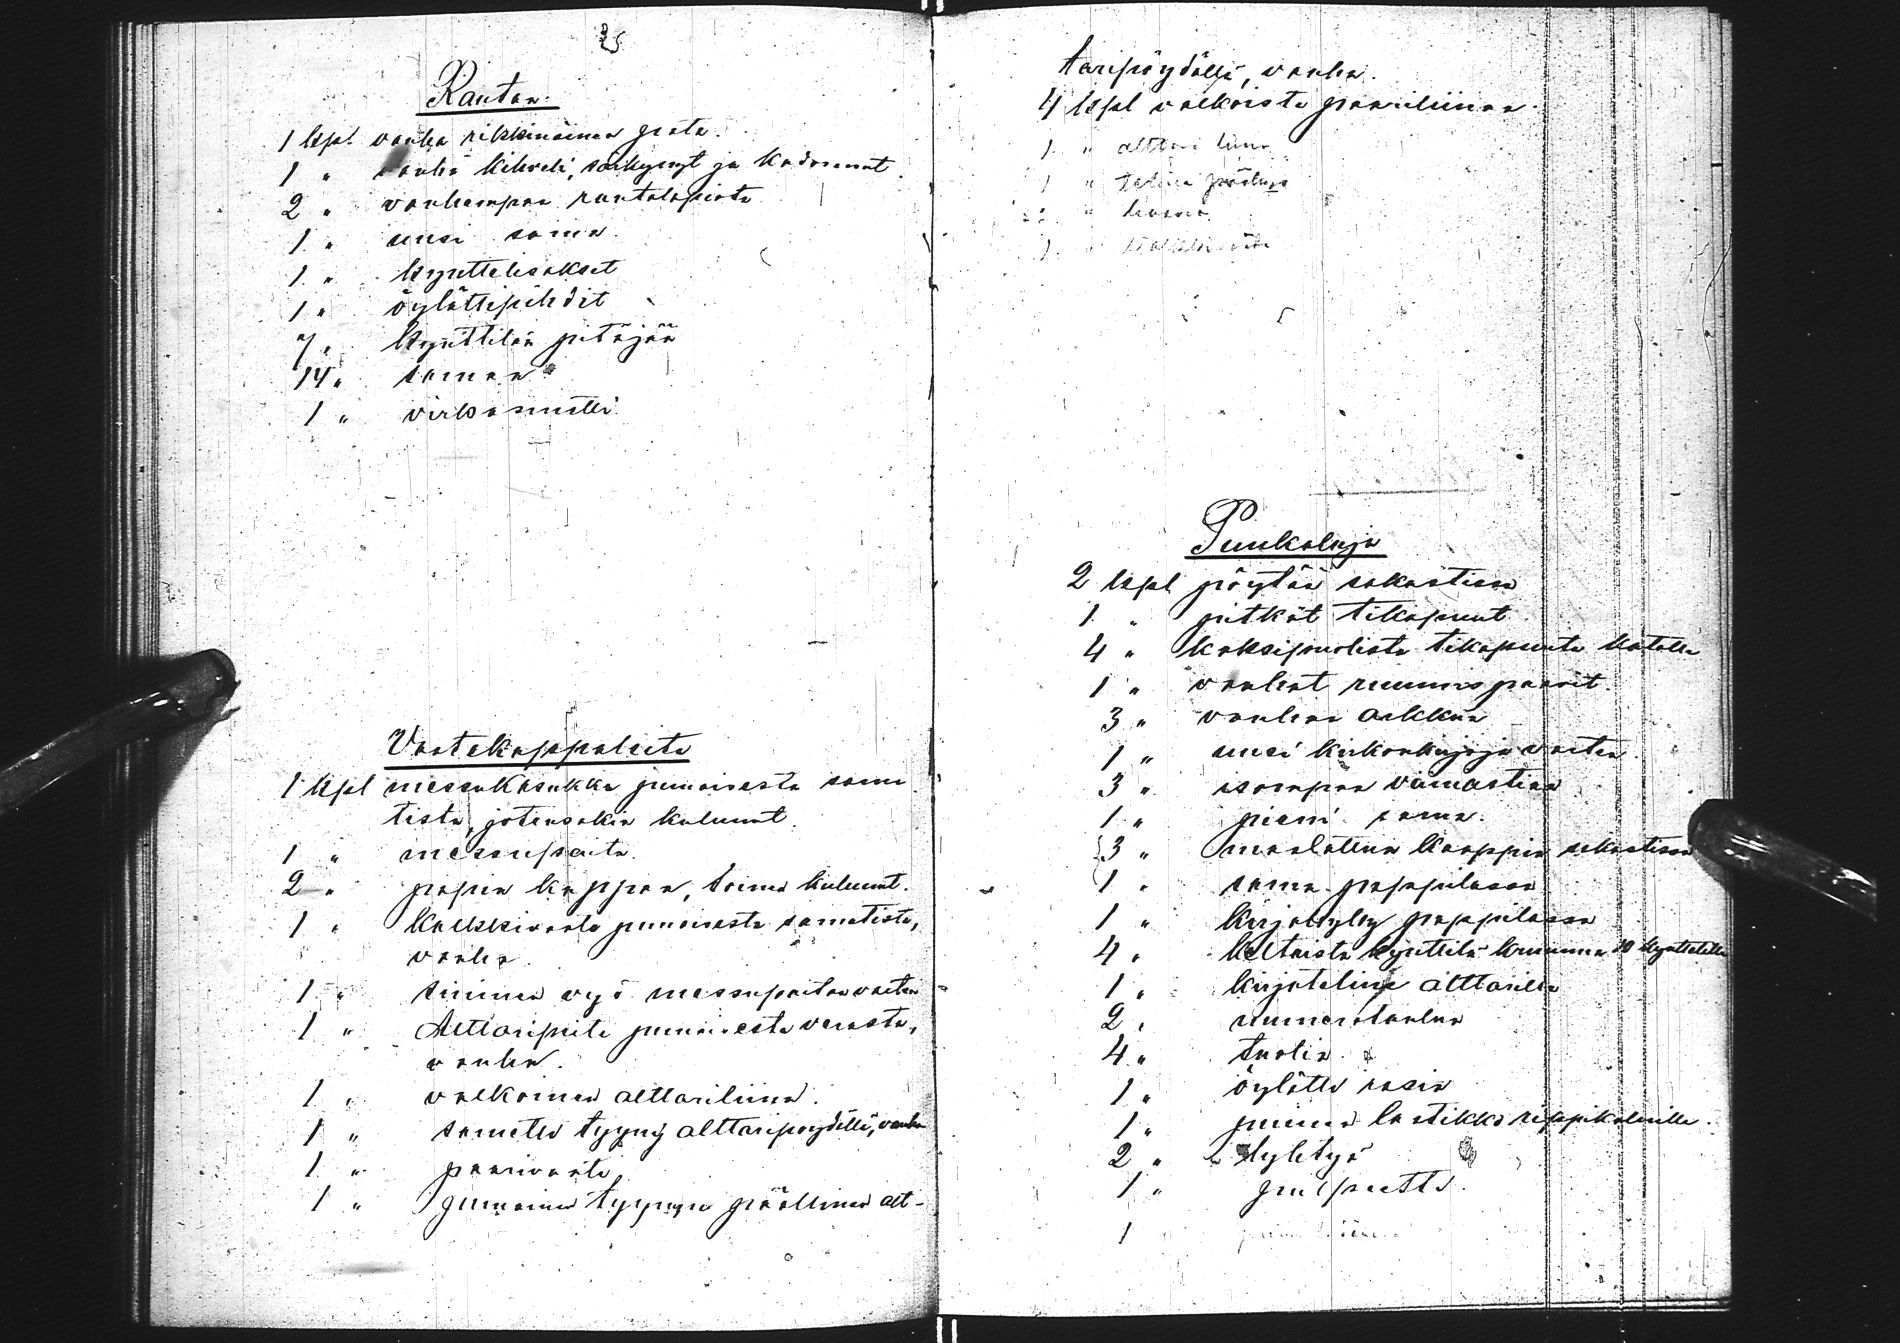 Rautaa.
1 kpl. vanha rikkinäinen pata.
1 " vanha kihveli, särkynyt ja kadonnut.
2 " vanhempaa rautalapiota
1 " uusi sama.
1 " kynttelisakset
1 " öylättipihdit
7 " kynttilän pitäjää
14 " samaa
1 "
Vaatekappaleita
1 kpl messukasukka punaisesta same
tista, jotensakin kulunut.
1 " messupaita.
2 " papin kappaa, toinen kulunut.
1 " kalkkivaate punaisesta sametista,
vanha.
1 " sininen vyö messupaitaa varten
1 " Alttaripeite punaisesta verasta,
vanha.
1 " valkoinen alttariliina.
1 " sametti tyyny alttaripöydällä, vanha
1 " paarivaate
1 " punainen tyynyn päällinen alt-
taripöydällä, vanha.
4 kpl valkoista paariliinaa.
1 " alttari liina
1 "
"
1 "
Puukaluja
2 kpl pöytää sakastissa
1 " pitkät tikapuut
4 " kaksipuolista tikapuuta katolla
1 " vanhat ruumispaarit.
3 " vanhaa arkkua
1 " uusi kirkonkirjoja varten.
3 " isompaa viiniastiaa
1 " pieni sama.
3 " maalattua kaappia sakastissa
1 " sama pappilassa
1 " kirjahylly pappilassa
4 " keltaista kynttilä kruunua 10 kynttelille
1 " kirjateline alttarilla
2 " numerotaulua
4 " tuolia.
1 " öylätti rasia
1 " puinen laatikko rippikaluille.
2 "
1 " pulpetti.
1